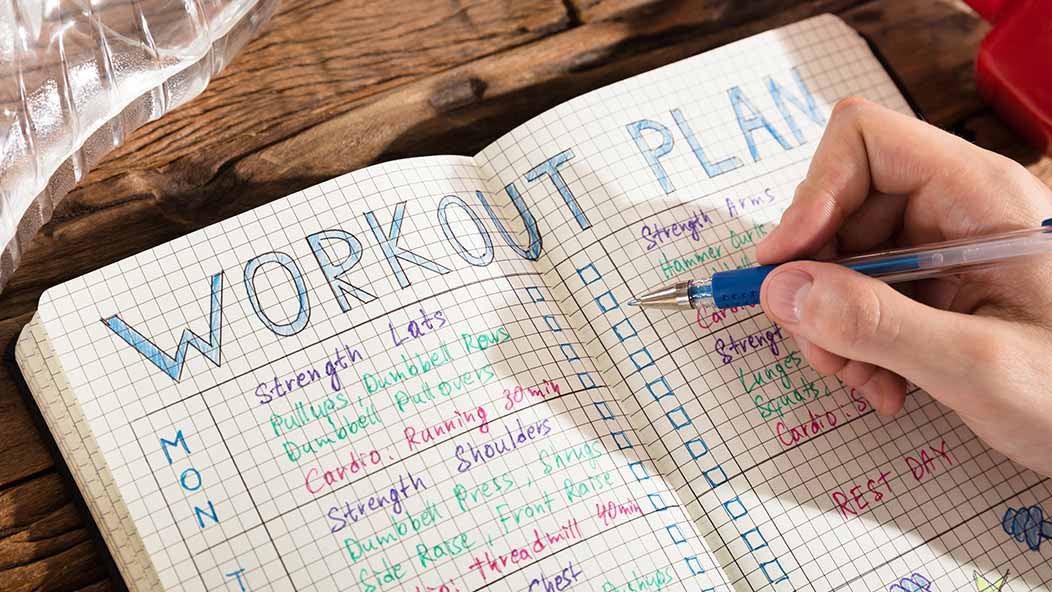 WORKOUT PLAN
MON
Strength Lats
Pullups, Dumbbell Rows
Dumbbell Pullovers
Cardio. Running 30min
T
Strength Shoulders
Dumbbell Press, Shrugs
Side Raise, Front Raise
threadmill 40min
Chest
Pushups
Strength Arms
Hammer
Lunges
Squats,
Cardio.
REST DAY